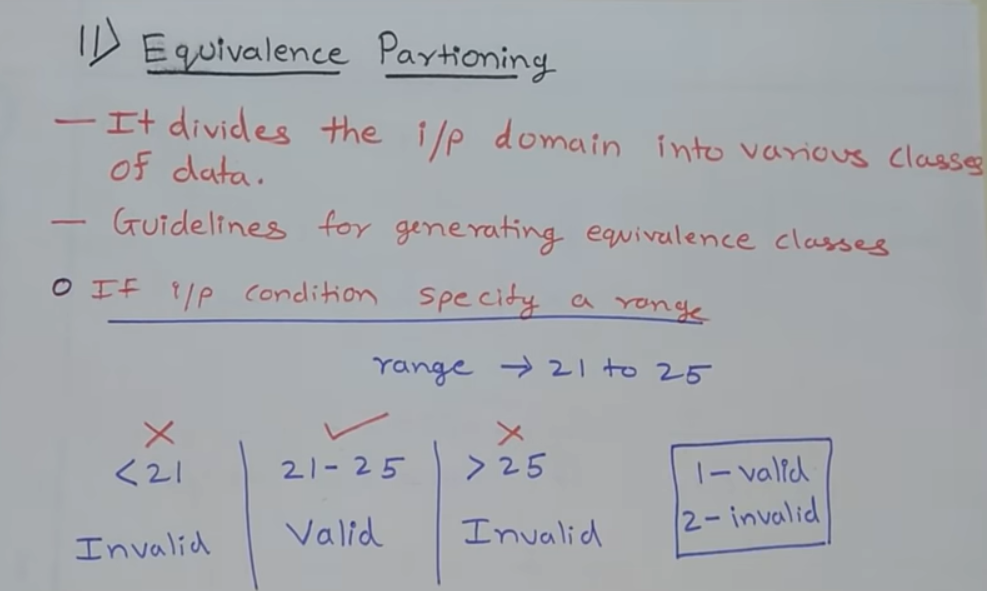 11) Equivalence Partioning
— It divides the i/p domain into various classes
of data.
— Guidelines for generating equivalence classes
o If i/p condition specify a range
range → 21 to 25
✗ ✓ ✗
<21 | 21-25 | >25
Invalid | Valid | Invalid
1-valid
2-invalid